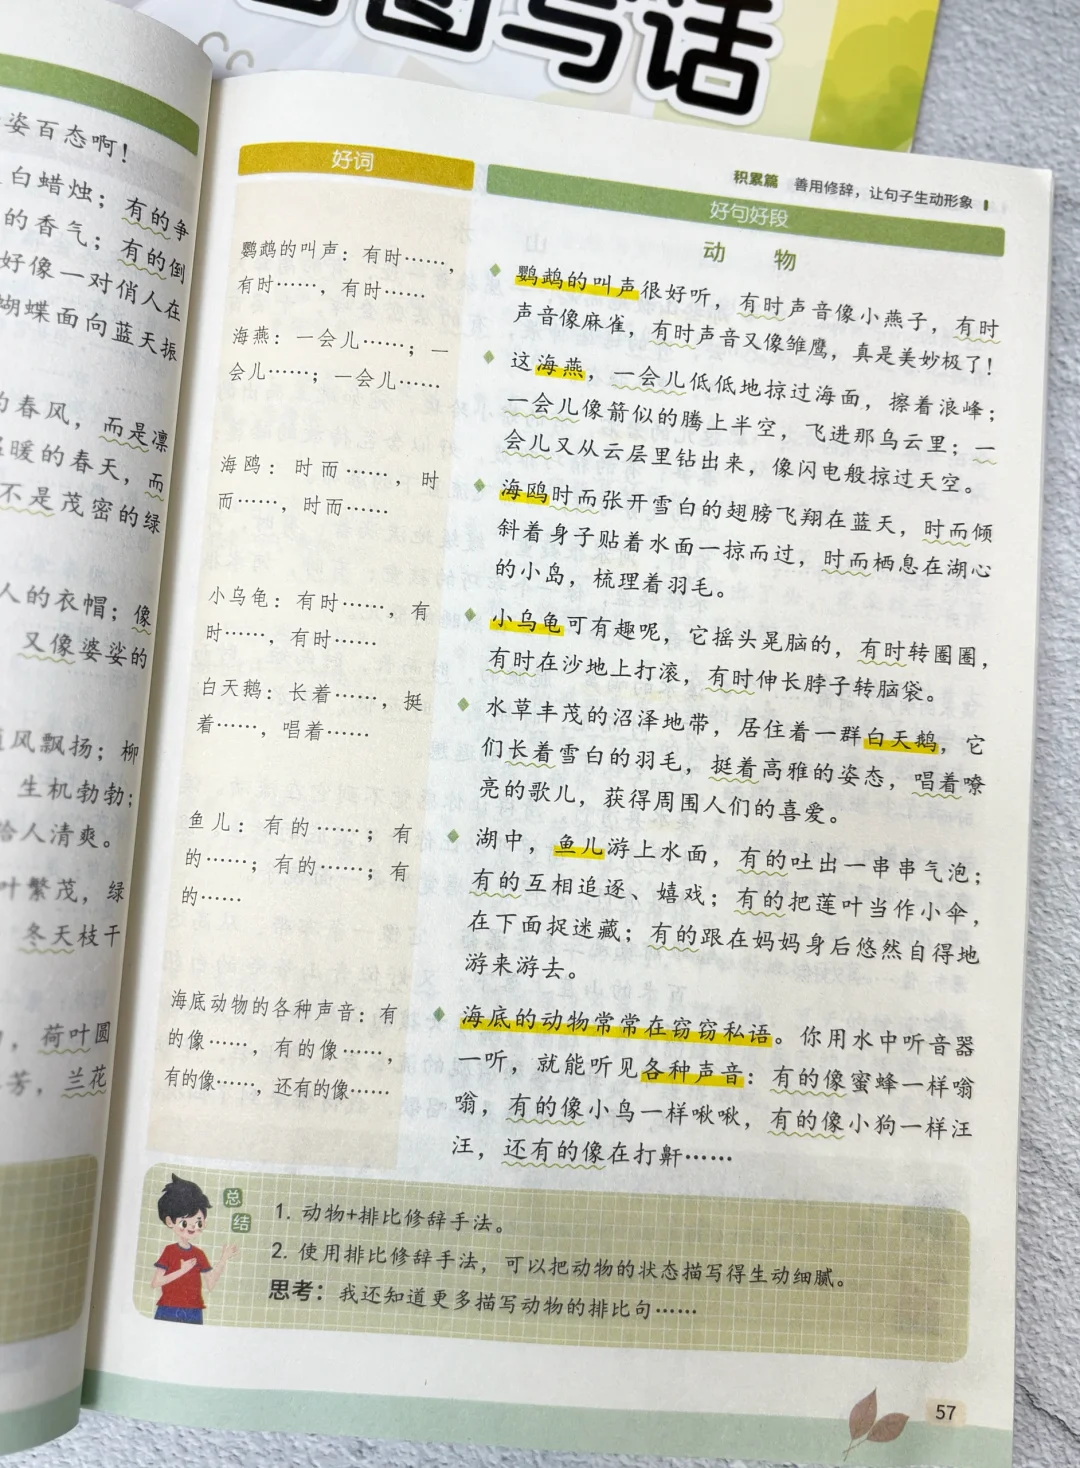 图写话
姿百态啊！
白蜡烛；有的争
的香气；有的倒
好像一对俏人在
蝴蝶面向蓝天振
的春风，而是凛
温暖的春天，而
不是茂密的绿
人的衣帽；像
又像婆娑的
随风飘扬；柳
生机勃勃；
给人清爽。
叶繁茂，绿
冬天枝干
，荷叶圆
芳，兰花
积累篇 善用修辞，让句子生动形象
好词
鹦鹉的叫声：有时……，
有时……，有时……
海燕：一会儿……；一
会儿……；一会儿……
海鸥：时而……，时
而……，时而……
小乌龟：有时……，有
时……，有时……
白天鹅：长着……，挺
着……，唱着……
鱼儿：有的……；有
的……；有的……；有
的……
海底动物的各种声音：有
的像……，有的像……，
有的像……，还有的像……
好句好段
动 物
鹦鹉的叫声很好听，有时声音像小燕子，有时
声音像麻雀，有时声音又像雏鹰，真是美妙极了！
这海燕，一会儿低低地掠过海面，擦着浪峰；
一会儿像箭似的腾上半空，飞进那乌云里；一
会儿又从云层里钻出来，像闪电般掠过天空。
海鸥时而张开雪白的翅膀飞翔在蓝天，时而倾
斜着身子贴着水面一掠而过，时而栖息在湖心
的小岛，梳理着羽毛。
小乌龟可有趣呢，它摇头晃脑的，有时转圈圈，
有时在沙地上打滚，有时伸长脖子转脑袋。
水草丰茂的沼泽地带，居住着一群白天鹅，它
们长着雪白的羽毛，挺着高雅的姿态，唱着嘹
亮的歌儿，获得周围人们的喜爱。
湖中，鱼儿游上水面，有的吐出一串串气泡；
有的互相追逐、嬉戏；有的把莲叶当作小伞，
在下面捉迷藏；有的跟在妈妈身后悠然自得地
游来游去。
海底的动物常常在窃窃私语。你用水中听音器
一听，就能听见各种声音：有的像蜜蜂一样嗡
嗡，有的像小鸟一样啾啾，有的像小狗一样汪
汪，还有的像在打鼾……
总结
1. 动物+排比修辞手法。
2. 使用排比修辞手法，可以把动物的状态描写得生动细腻。
思考：我还知道更多描写动物的排比句……
57